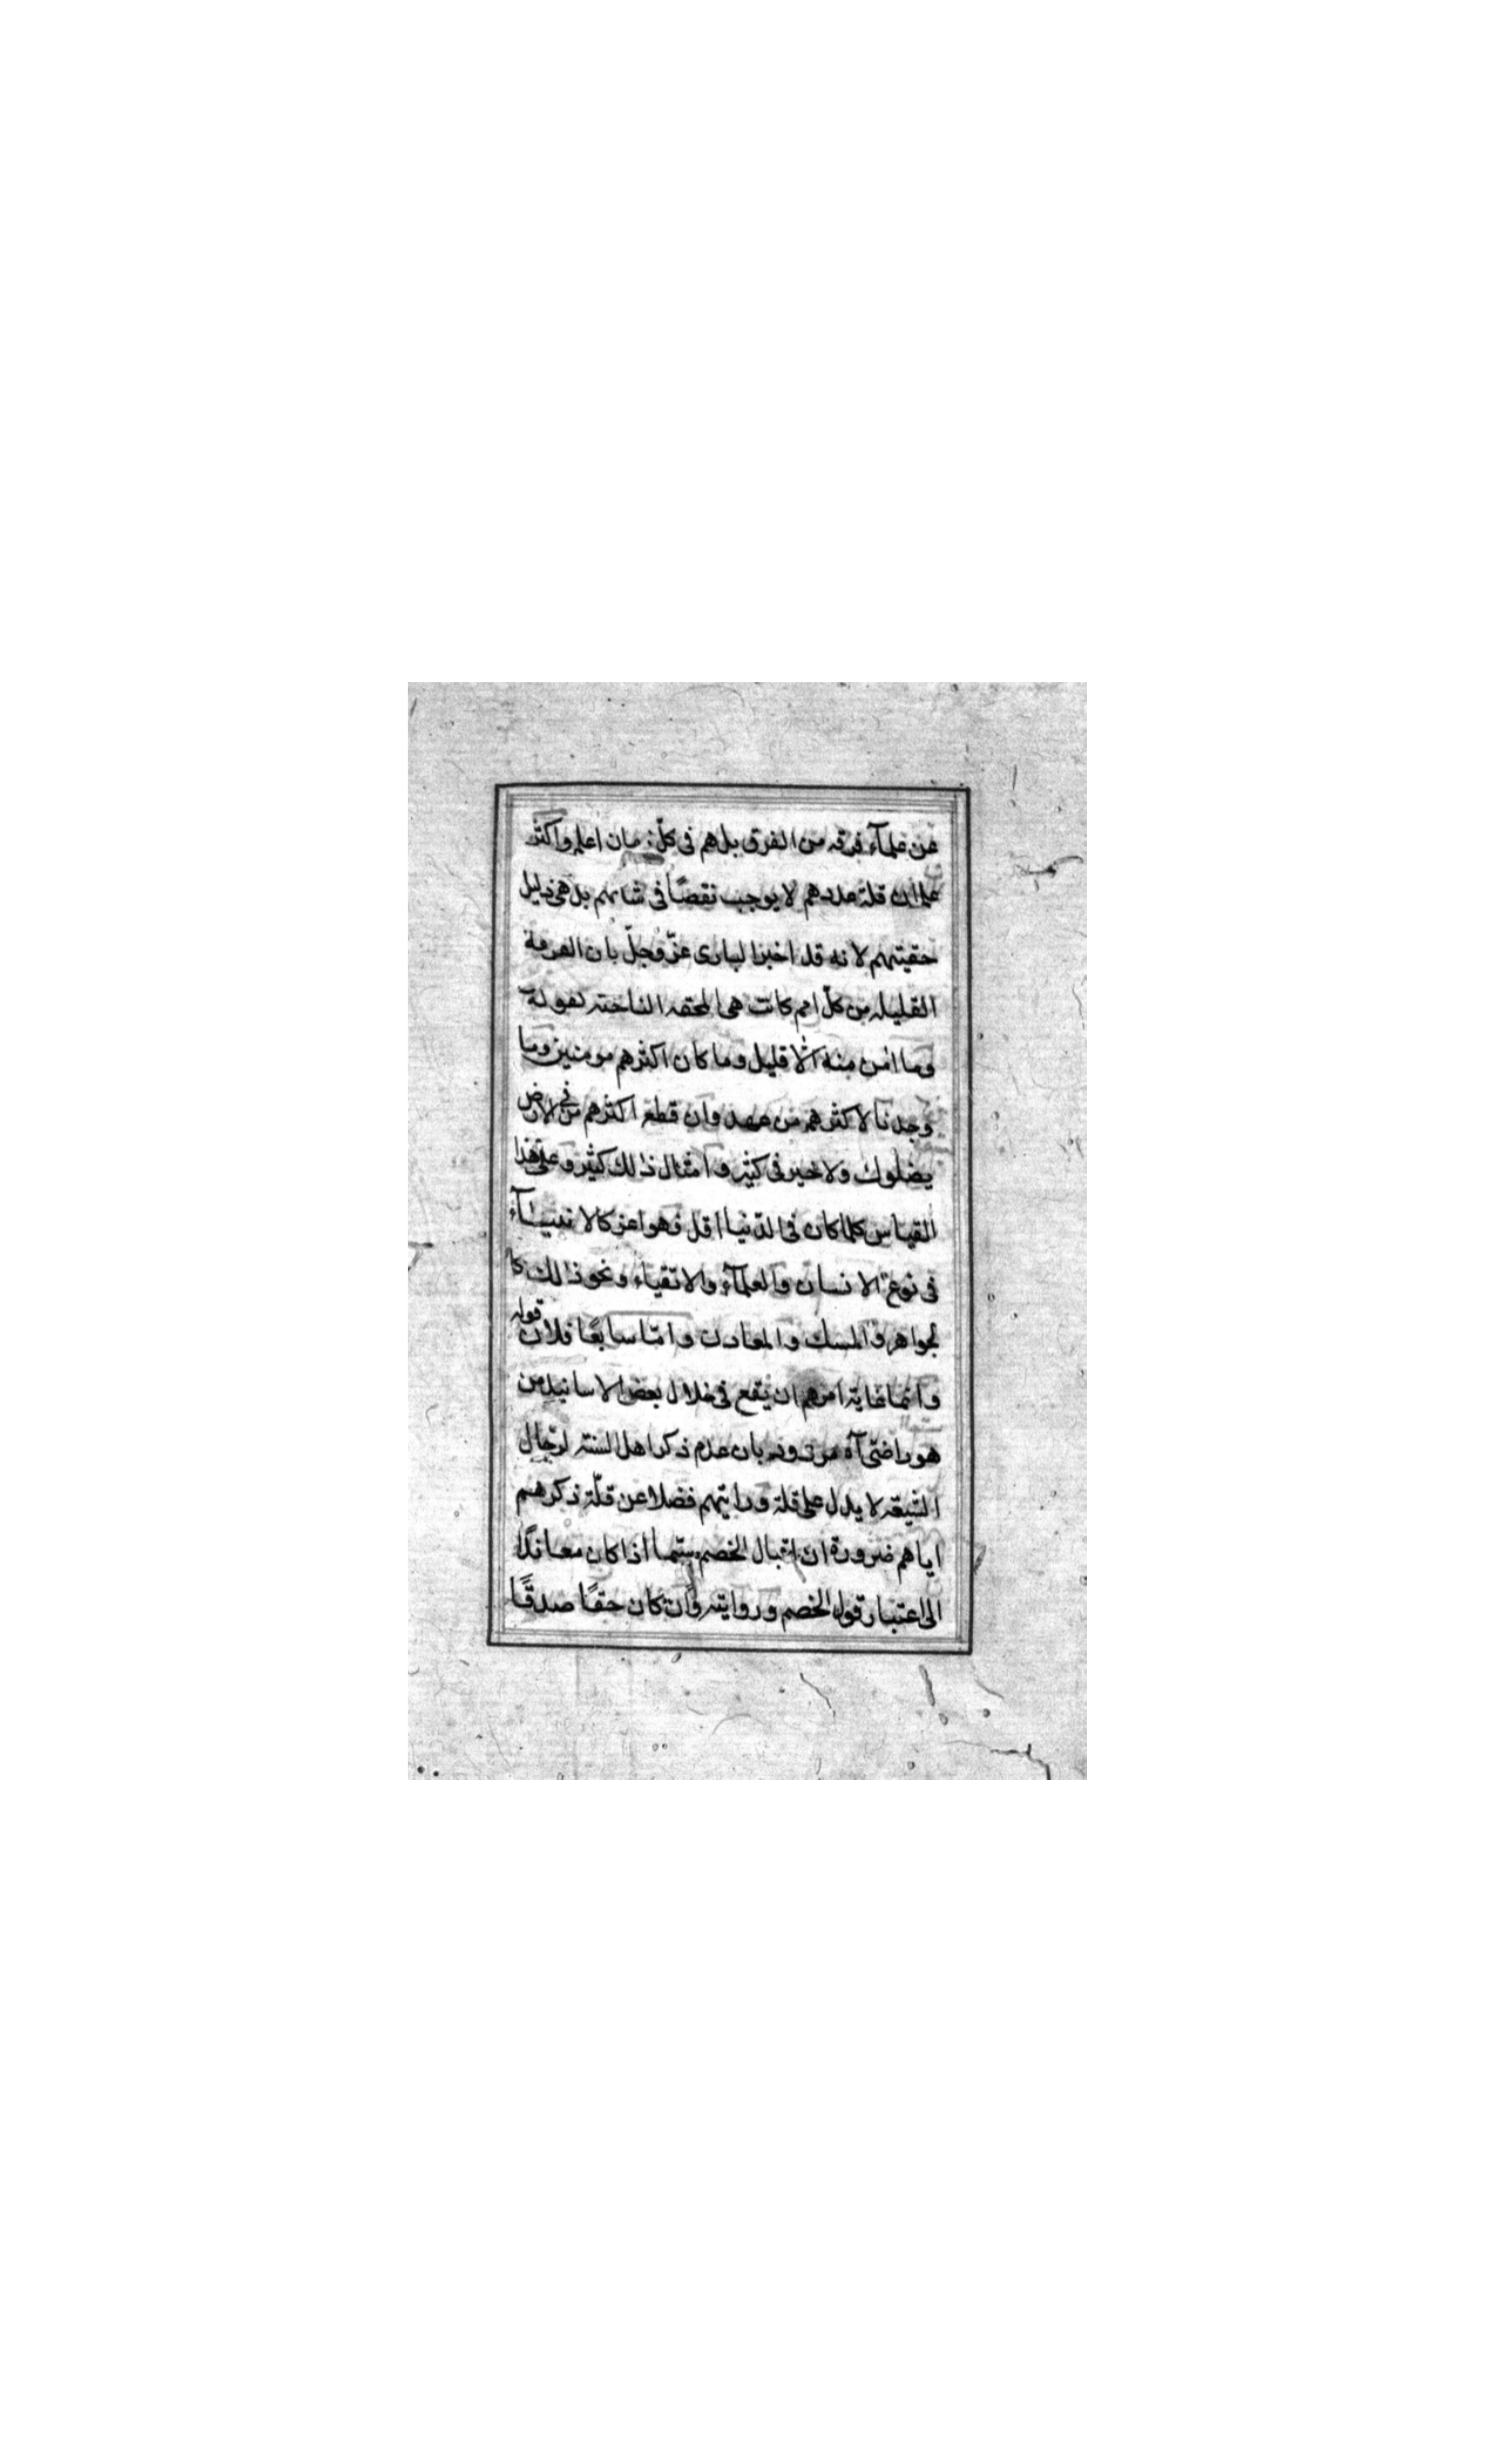 عن علمآء فرقه من الفرق بل هم فى كلّ زمان اعلم واكثر
علما ان قلة عددهم لا يوجب نقصًا فى شانهم بل هى دليل
حقيتهم لانه قد اخبر البارى عزّ وجلّ بان الفرقة
القليله من كلّ امم كانت هى المحقه الناجته لقوله
وما امن منه الا قليل وما كان اكثرهم مومنين وما
وجدنا لاكثرهم من عهد وان قطع اكثرهم من فى الارض
يضلوك ولا خير فى كثير وامثال ذلك كثير وعلى هذا
القياس كلما كان فى الدّنيا اقل فهو اعز كالانبيآء
فى نوع الانسان والعلمآء والاتقياء ونحو ذلك كا
لجواهر والمسك والمعادن وامّا سابعًا فلان قوله
وانما غاية امرهم ان يقع فى خلال بعض الاسانيد من
هو رافضى آه مردود بان عدم ذكر اهل السنته لرّجال
الشيعة لا يدل على قلة ورايتهم فضلا عن قلّة ذكرهم
اياهم ضرورة ان اقبال الخصم سيّما اذا كان معاندًا
الى اعتبار قول الخصم وروايته وان كان حقًا صدقًا